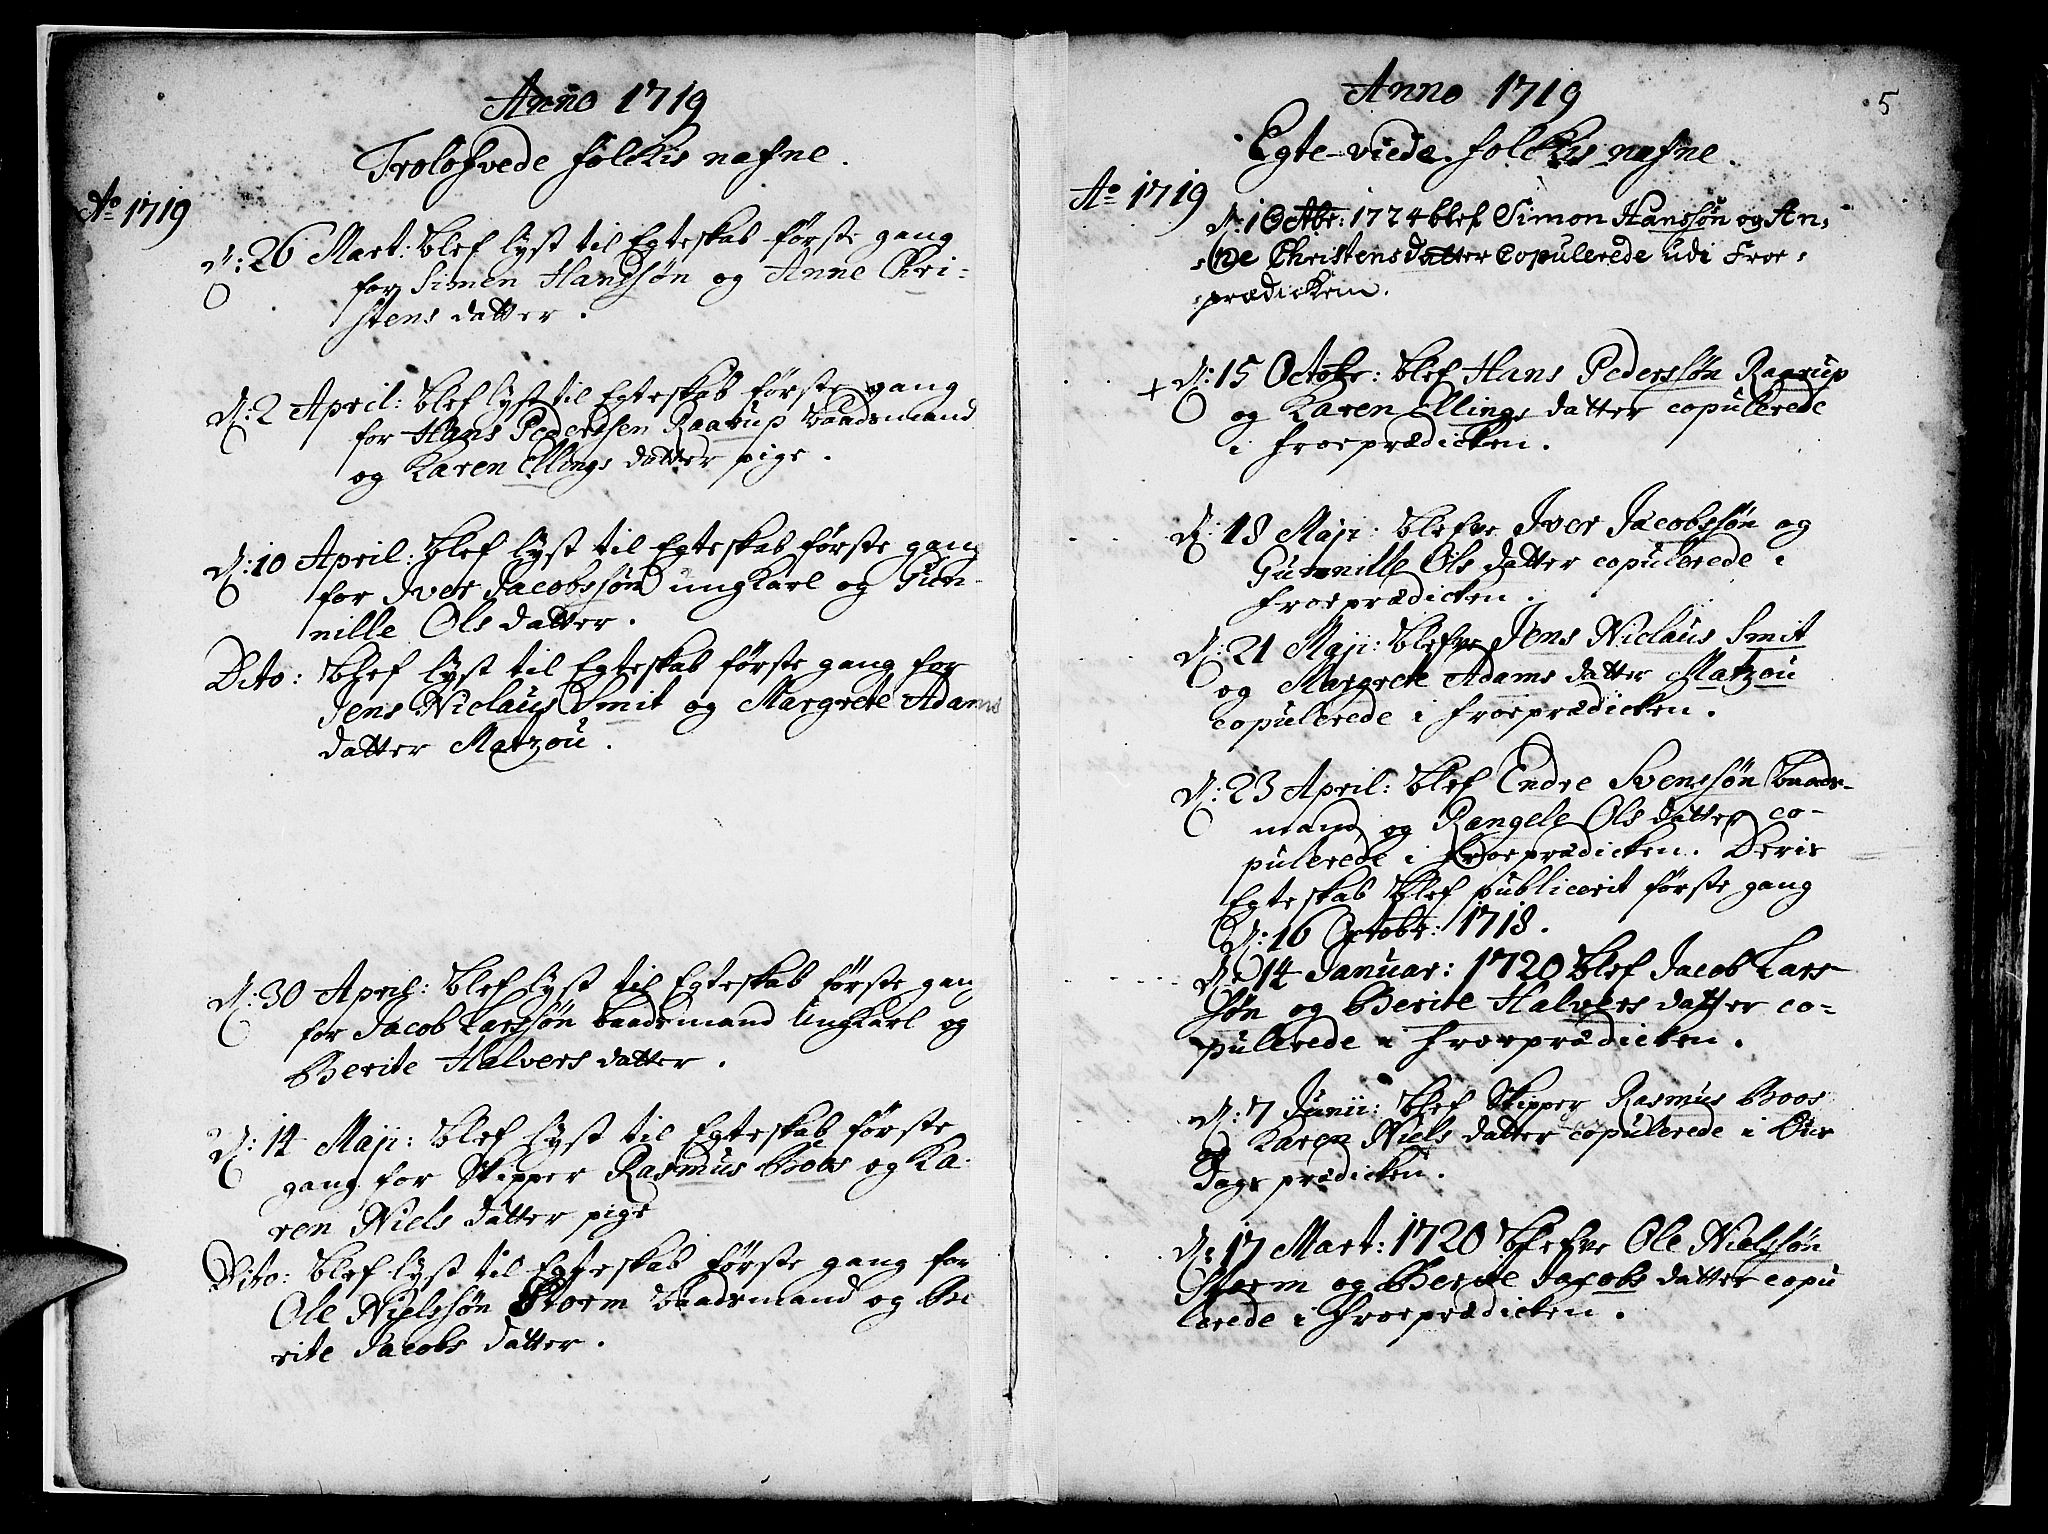 Anno 1719
Trolofvede folckis nafne.
Ao 1719
D: 26 Mart: blef lyst til Egteskab første gang
for Simen Handsøn og Anne Chri-
stens datter.
D: 2 April: blef lyst til Egteskab første gang
for Hans Pederssen Raarup baadsmand
og Karen Ellings datter pige.
D: 10 April: blef lyst til Egteskab første gang
for Iver Jacobssøn ungkarl og Gun-
nille Ols datter.
Dito: blef lyst til Egteskab første gang for
Jens Niclaus Smit og Margrete Adams
datter Matzou.
D: 30 April: blef lyst til Egteskab første gang
for Jacob Larssøn baadsmand ungkarl og
Berite Halvers datter.
D: 14 Maji: blef lyst til Egteskab første
gang for Skipper Rasmus Boos og Ka-
ren Niels datter pige
Dito: blef lyst til Egteskab første gang for
Ole Nielssøn Storm baadsmand og Be
rite Jacobs datter.
5
Anno 1719
Egte-viede folckis nafne.
Ao 1719
1724 blef Simon Hanssøn og An=
=ne Christensdatter Copulerede udi Froe=
=prædicken.
+ D: 15 Octobr: blef Hans Pederssøn Raarup
og Karen Ellings datter copulerede
i froeprædicken.
D: 18 Maji: blefve Iver Jacobssøn og
Gunnille Ols datter copulerede i
froeprædicken.
D: 21 Maji: blefve Jens Niclaus Smit
og Margrete Adams datter Matzou
copulerede i froeprædicken.
D: 23 April: blef Endre Svenssøn baads-
mand og Rangele Ols datter co-
pulerede i froeprædicken. Deris
Egteskab blef publicerit første gang
D: 16 Octobr: 1718.
D: 14 Januar: 1720 blef Jacob Lars
søn og Berite Halvers datter co-
pulerede i froeprædicken.
D: 7 Junii: blef Skipper Rasmus Boos
og Karen Niels datter copulerede i
dags prædicken.
D: 17 Mart: 1720 blefve Ole Nielssøn
Storm og Berite Jacobs datter copu
lerede i froeprædicken.